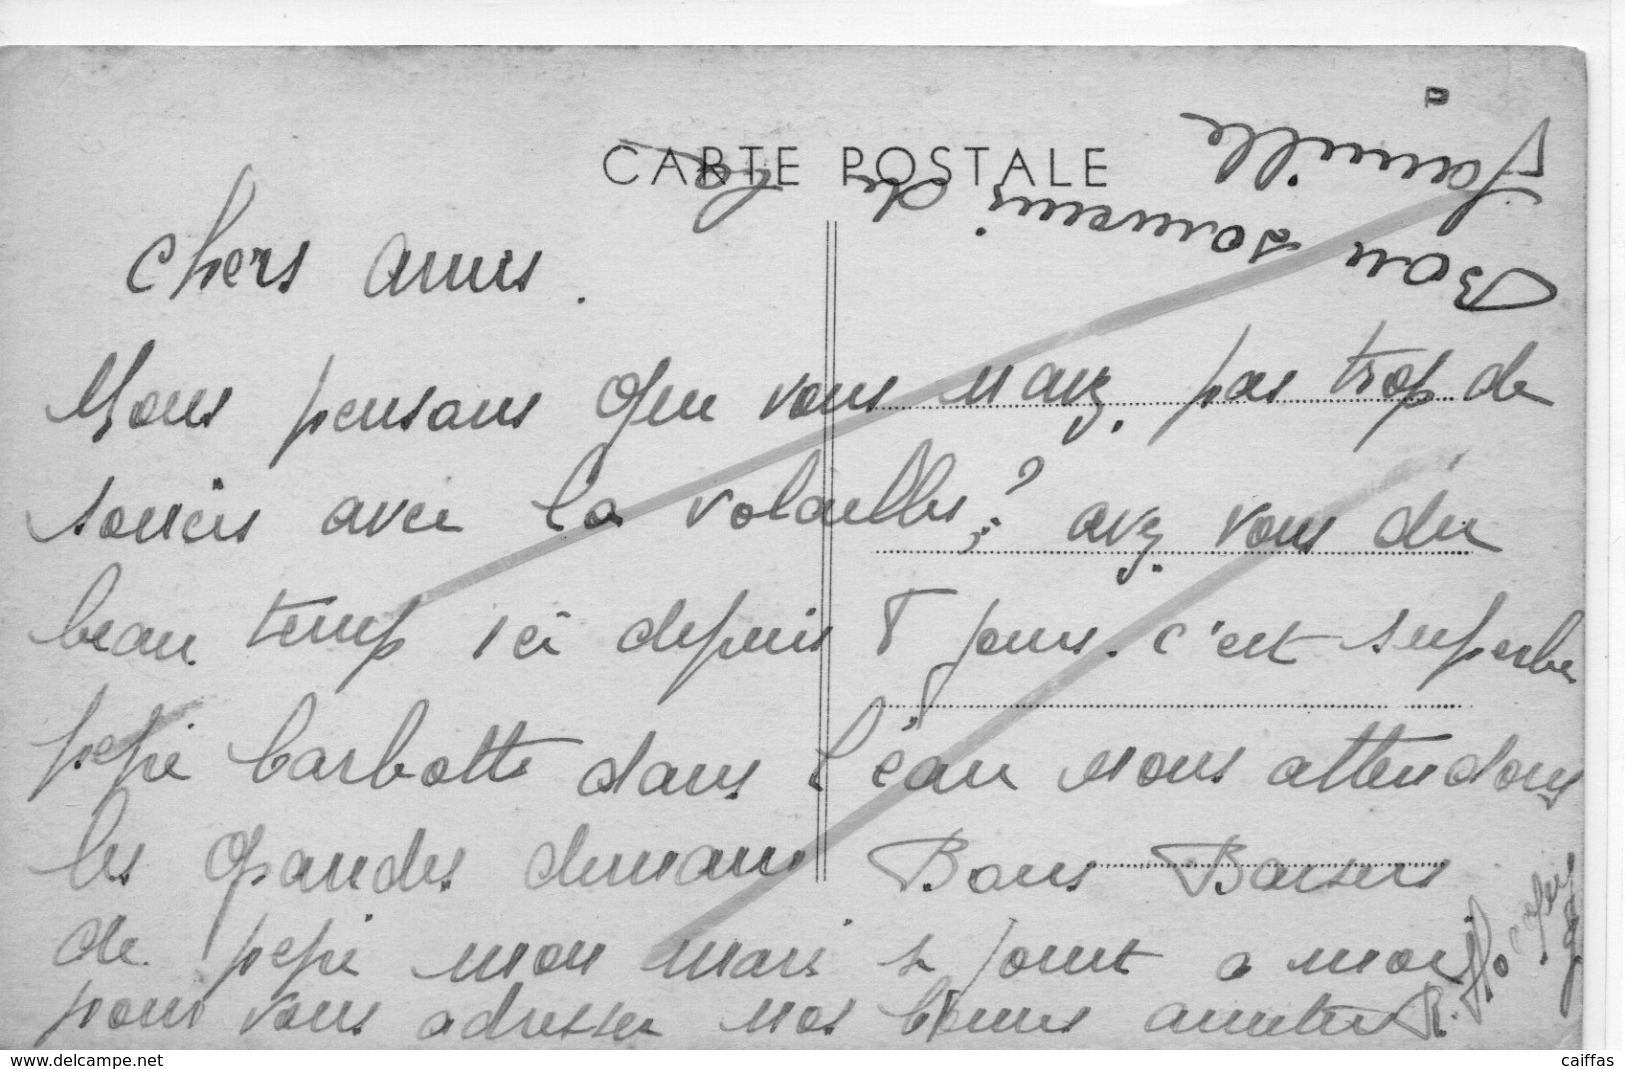 CARTE POSTALE
Bon souvenir de la
famille
chers amis.
Nous pensons que vous navez pas trop de
soucis avec la volailles? avez vous du
beau temp ici depuis 8 jours. c'est superbe
pepé barbotte dans l'eau nous attendons
les grandes demain Bons Baisers
de pepé mon mari se joint a moi
pour vous adresser nos bonnes amitiés R.
www.delcampe.net
caiffas